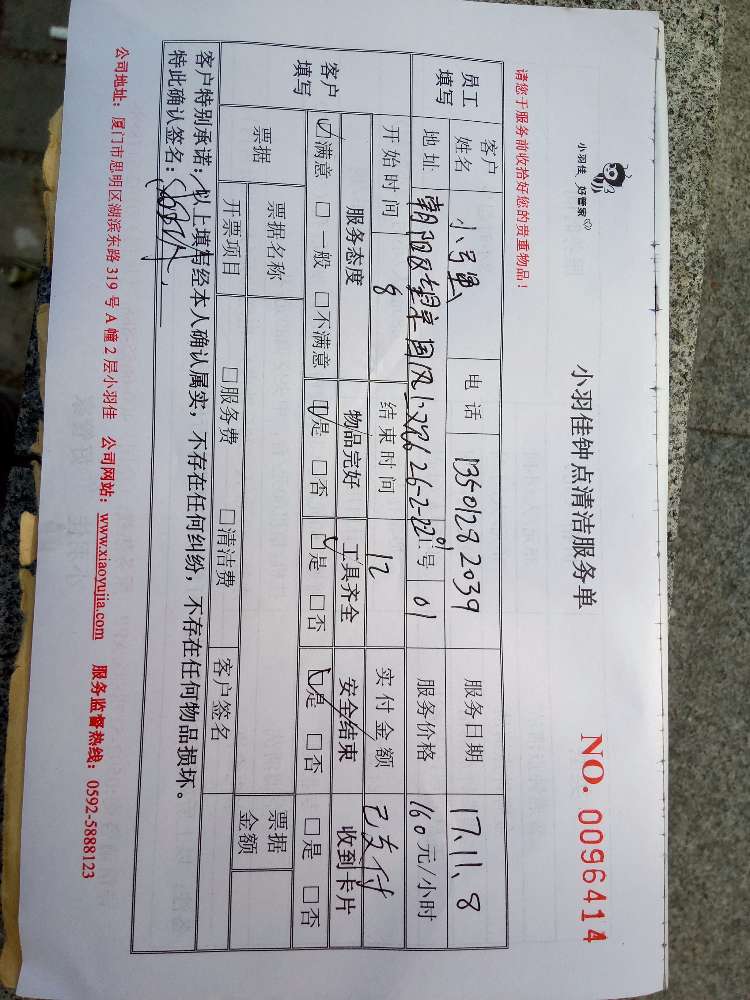 小羽佳 好管家
小羽佳钟点清洁服务单
NO. 0096414
请您于服务前收拾好您的贵重物品！
员工填写 客户姓名 小马 电话 13501282039 服务日期 17.11.8
地址: 朝阳区望京国风上观 626-2-2201号 01 服务价格 160元/小时
开始时间 8 结束时间 12 实付金额 已支付
客户填写 服务态度 物品完好 工具齐全 安全结束 收到卡片
☑满意 □一般 □不满意 ☑是 □否 ☑是 □否 ☑是 □否 □是 □否
票据 票据名称 票据金额
开票项目 □服务费 □清洁费 客户签名
客户特别承诺：以上填写经本人确认属实，不存在任何纠纷，不存在任何物品损坏。
特此确认签名：
公司地址：厦门市思明区湖滨东路 319 号 A 幢 2 层小羽佳 公司网站：www.xiaoyujia.com 服务监督热线：0592-5888123